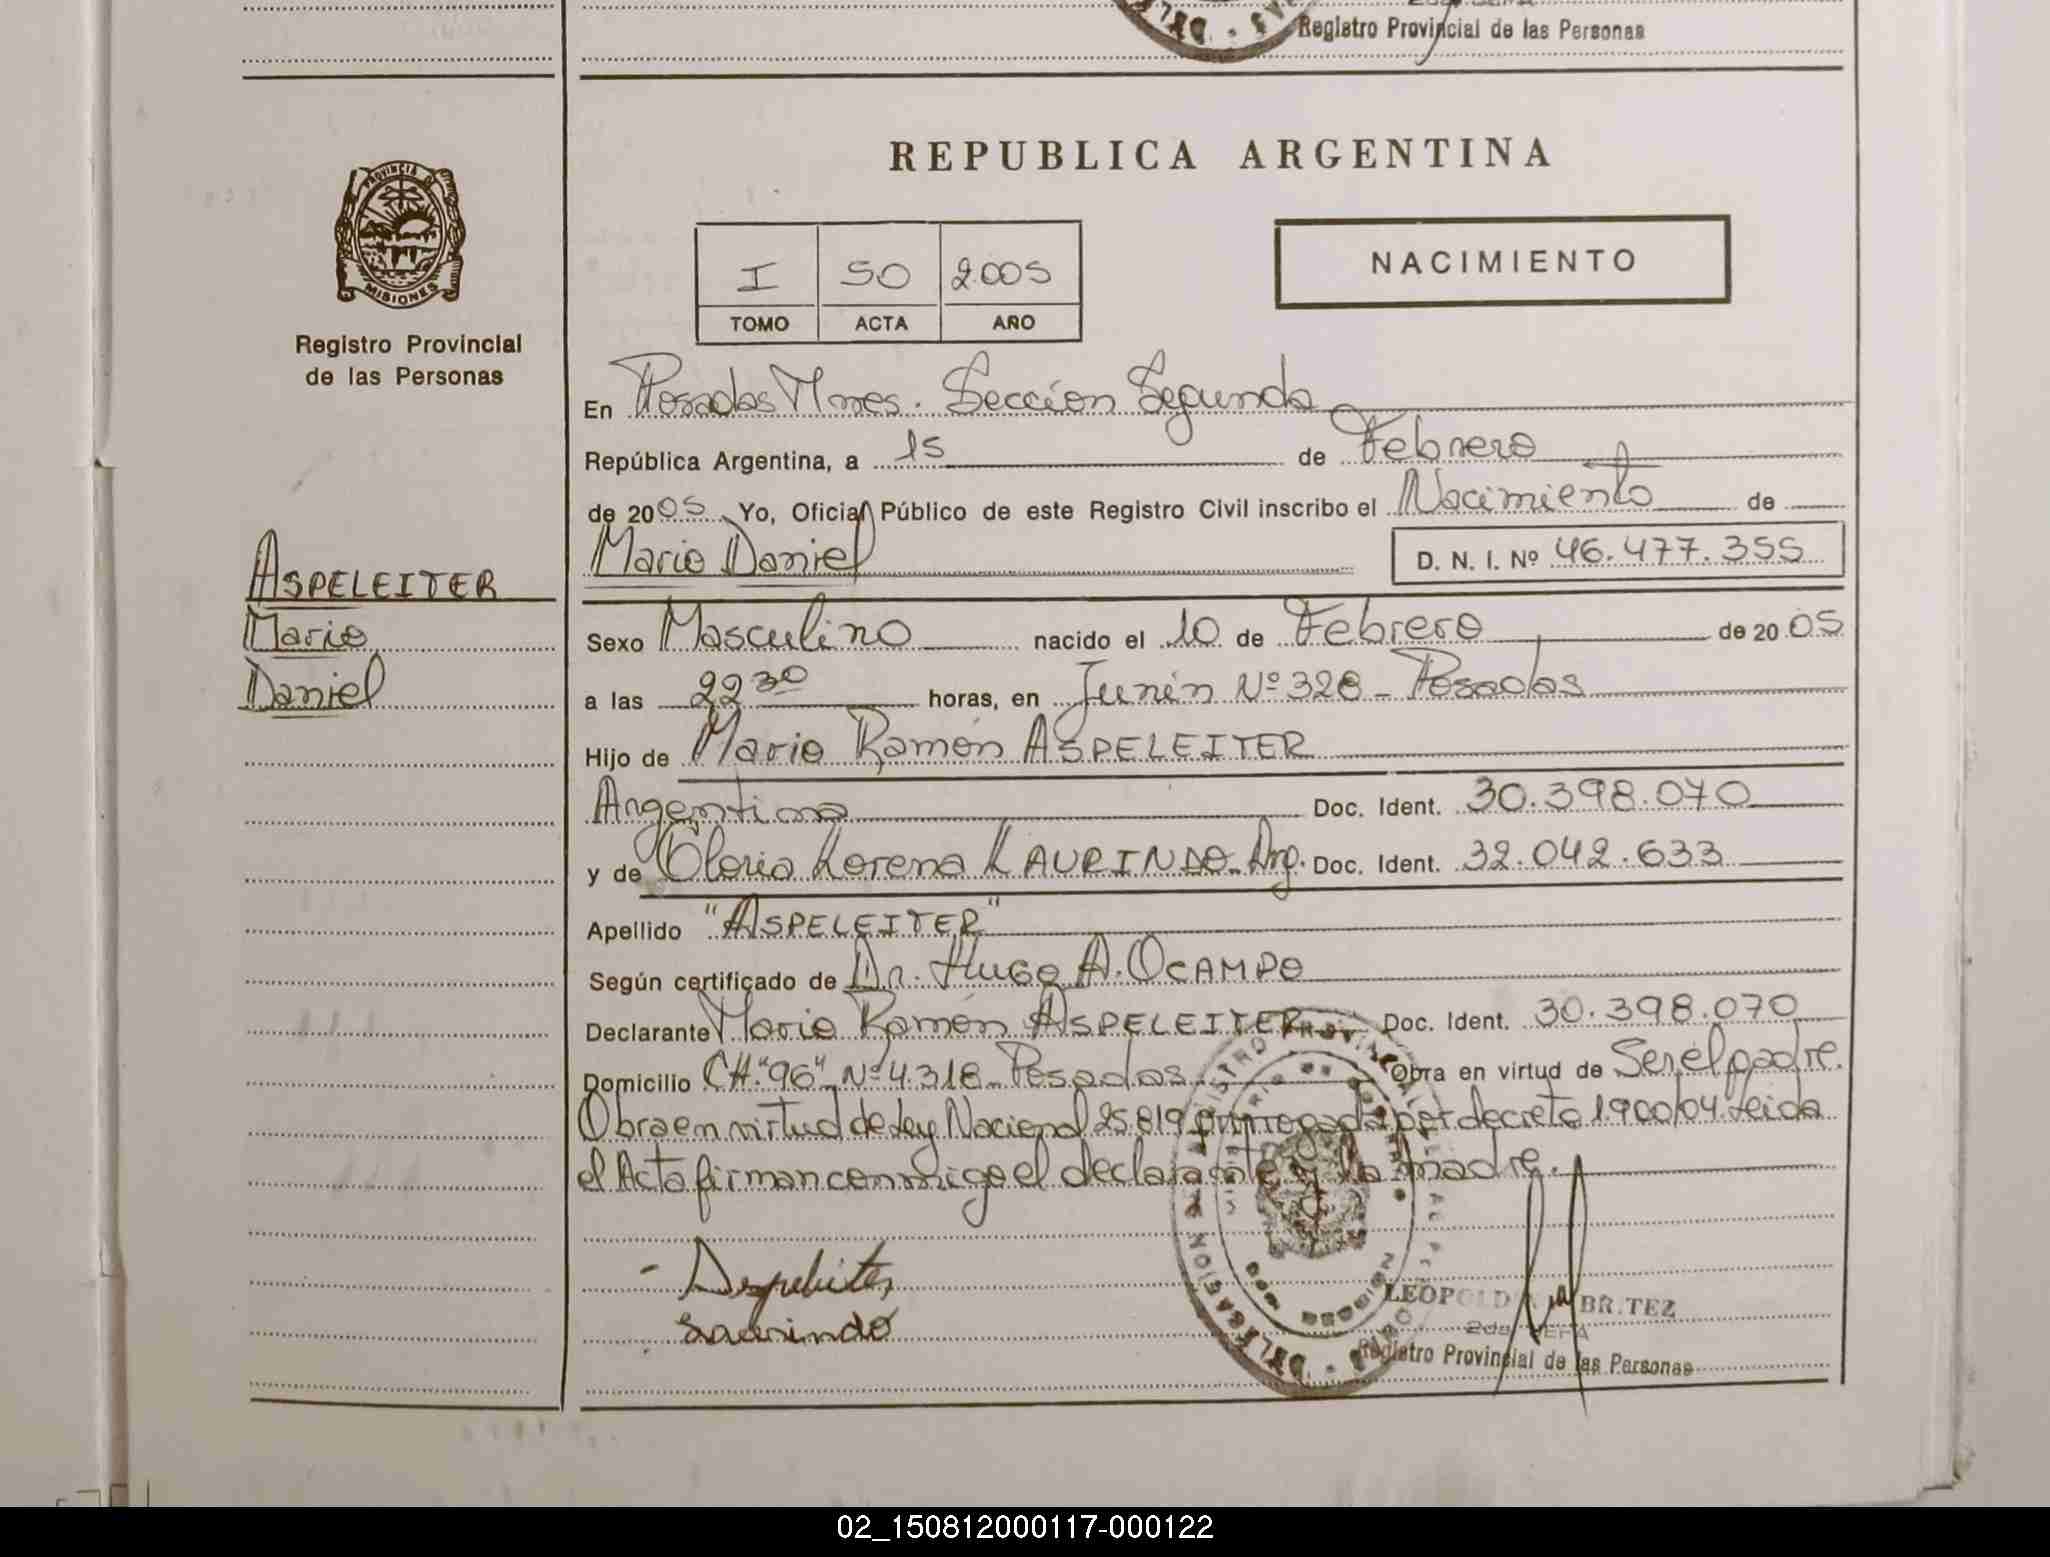 Registro Provincial de las Personas
REPUBLICA ARGENTINA
PROVINCIA DE
MISIONES
Registro Provincial
de las Personas
I 50 2005
TOMO ACTA AÑO
NACIMIENTO
En Posadas Mnes. Sección Segunda
República Argentina, a 15 de Febrero
de 2005 Yo, Oficial Público de este Registro Civil inscribo el Nacimiento de
Mario Daniel D. N. I. Nº 46.477.355
ASPELEITER
Mario
Daniel
Sexo Masculino nacido el 10 de Febrero de 2005
a las 22 30 horas, en Junín Nº 328 - Posadas
Hijo de Mario Ramón ASPELEITER
Argentino Doc. Ident. 30.398.070
y de Gloria Lorena LAURINDO. Arg. Doc. Ident. 32.042.633
Apellido "ASPELEITER"
Según certificado de Dr. Hugo A. OCAMPO
Declarante Mario Ramón ASPELEITER Doc. Ident. 30.398.070
Domicilio CH. "96" Nº 4.318 - Posadas Obra en virtud de Ser el padre.
Obra en virtud de Ley Nacional 25.819 prorrogada por decreto 1900/04. Leida
el Acta firman conmigo el declarante y la madre.
Aspeleiter
Laurindo
2da JEFA
Registro Provincial de las Personas
02_150812000117-000122